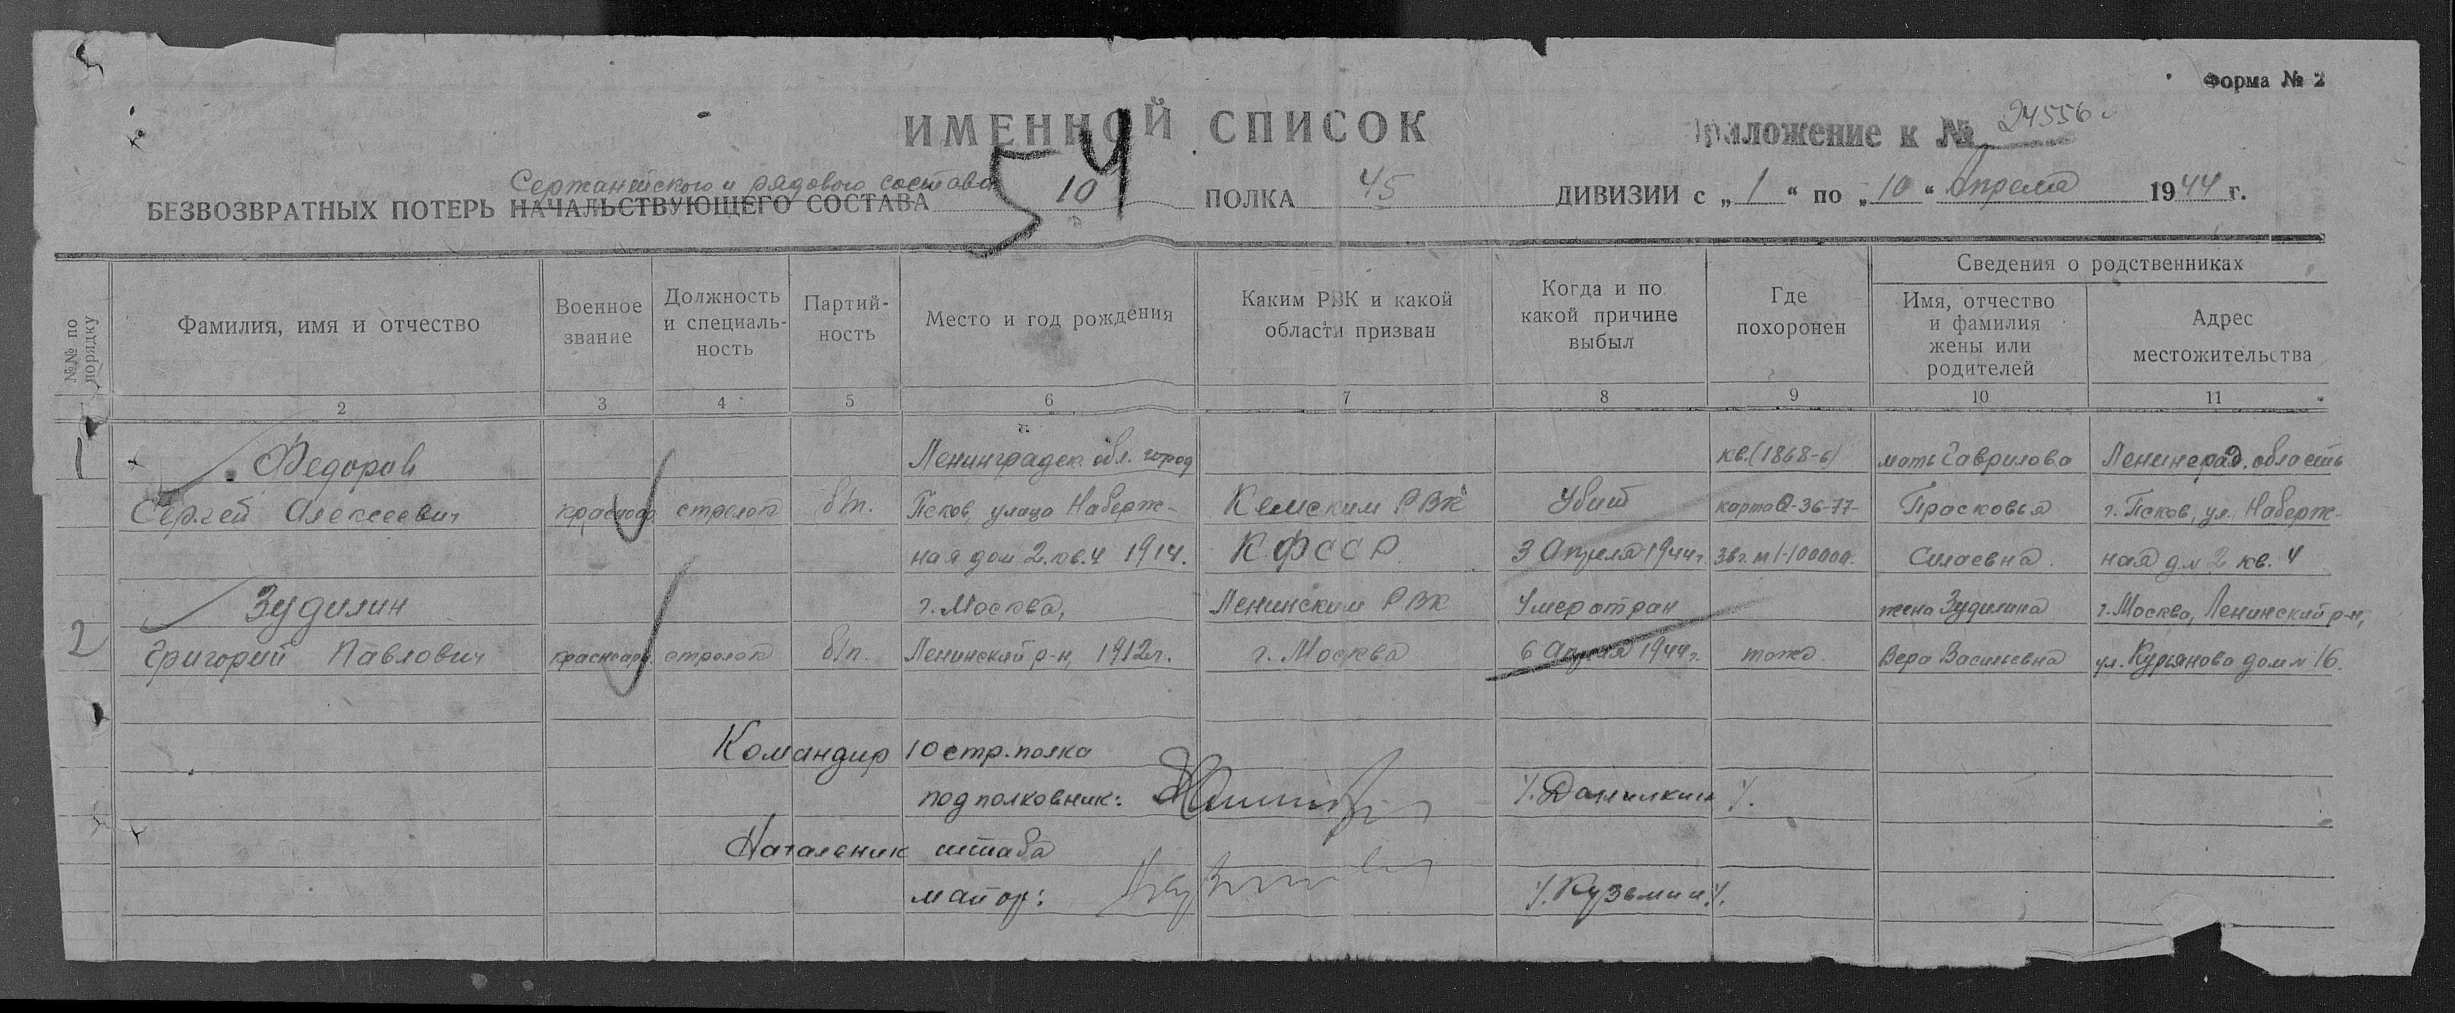 Форма № 2
ИМЕННОЙ СПИСОК
Приложение к № 24556с
54
Сержантского и рядового состава
БЕЗВОЗВРАТНЫХ ПОТЕРЬ НАЧАЛЬСТВУЮЩЕГО СОСТАВА 10 ПОЛКА 45 ДИВИЗИИ с „1“ по „10“ Апреля 1944 г.
№№ по порядку
Фамилия, имя и отчество
Военное звание
Должность и специаль-ность
Партий-ность
Место и год рождения
Каким РВК и какой области призван
Когда и по какой причине выбыл
Где похоронен
Сведения о родственниках
Имя, отчество и фамилия жены или родителей
Адрес местожительства
2 3 4 5 6 7 8 9 10 11
1 Федоров Ленинградск. обл. город кв.(1868-б) мать Гаврилова Ленинград. область
Сергей Алексеевич красноар стрелок б/п. Псков, улица Набереж- Кемским РВК Убит карта Q-36-77- Прасковья г. Псков, ул. Набереж-
ная дом 2. кв. 4 1914. КФССР 3 Апреля 1944 г. 38 г. м 1-100000. Силаевна. ная д. № 2 кв. 4
Зудилин г. Москва, Ленинским РВК Умер от ран жена Зудилина г. Москва, Ленинский р-н,
2 Григорий Павлович красноар. стрелок б/п. Ленинский р-н, 1912 г. г. Москва 6 Апреля 1944 г. тоже Вера Васильевна ул. Курьяново дом № 16.
Командир 10 стр. полка
подполковник: /. Данилкин /.
Начальник штаба
майор: /. Кузьмин /.